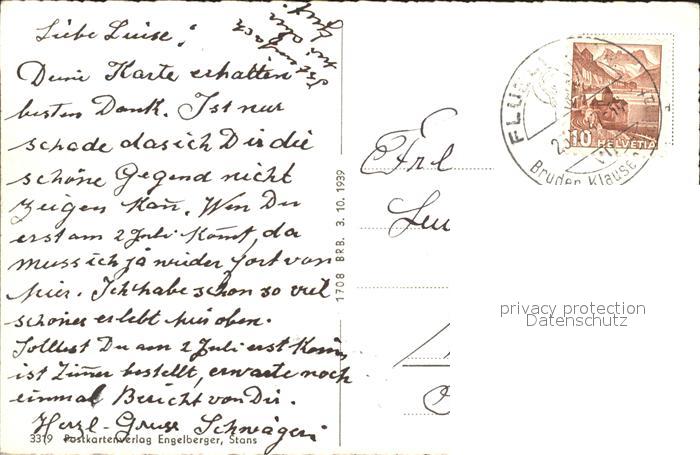 Liebe Luise,
Deine Karte erhalten
besten Dank. Ist nur
schade das ich Dir die
schöne Gegend nicht
zeigen kan̄. Wen Du
erst am 2 Juli kom̄t, da
muss ich ja wieder fort von
hier. Ich habe schon so viel
schönes erlebt hier oben.
Solltest Du am 2 Juli erst kom̄
ist Zim̄er bestellt, erwarte noch
einmal Bericht von Dir.
Herzl-Gruss Schwägeri
3319 Postkartenverlag Engelberger, Stans
1708 BRB. 3. 10. 1939
Frl
FLÜELI
Bruder Klause
10 HELVETIA
privacy protection
Datenschutz